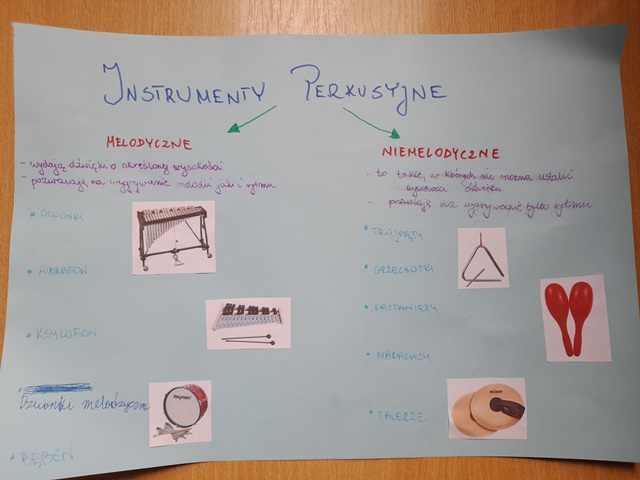 INSTRUMENTY PERKUSYJNE
MELODYCZNE
- wydają dźwięki o określonej wysokości
- pozwalają na wygrywanie melodii jak i rytmu
• DZWONKI
• WIBRAFON
• KSYLOFON
• Dzwonki melodyczne
• BĘBEN
NIEMELODYCZNE
- to takie, w których nie można ustalić
wysokości dźwięku
- pozwalają na wygrywanie tylko rytmu
• TRÓJKĄTY
• GRZECHOTKI
• KASTANIETY
• MARAKASY
• TALERZE